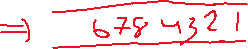 ⇒ 6784321